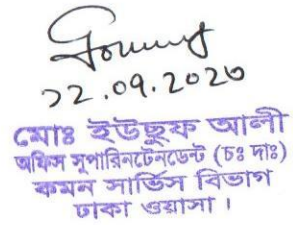 ২২.০৭.২০২০
মোঃ ইউছুফ আলী
অফিস সুপারিনটেনডেন্ট (চঃ দাঃ)
কমন সার্ভিস বিভাগ
ঢাকা ওয়াসা।